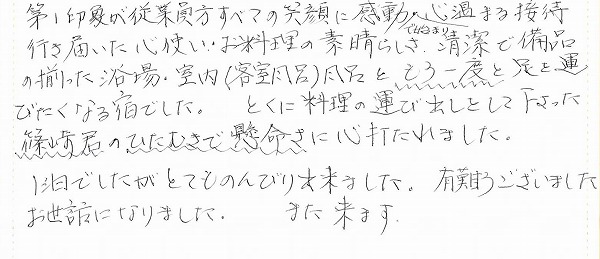 第1印象が従業員方すべての笑顔に感動・心温まる接待
行き届いた心使い・お料理の素晴らしさ、清潔で備品
の揃った浴場・室内(客室風呂)風呂ともう一度と足を運
びたくなる宿でした。 とくに料理の運び出しとして下さった
篠崎君のひたむきで懸命さに心打たれました。
1泊でしたがとてものんびり出来ました。有難うございました
お世話になりました。 また来ます。